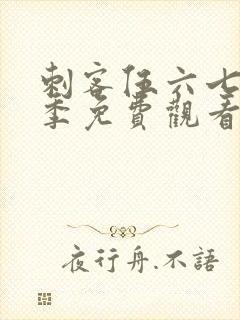 刺客伍六七
季免費觀看
夜行舟.不語